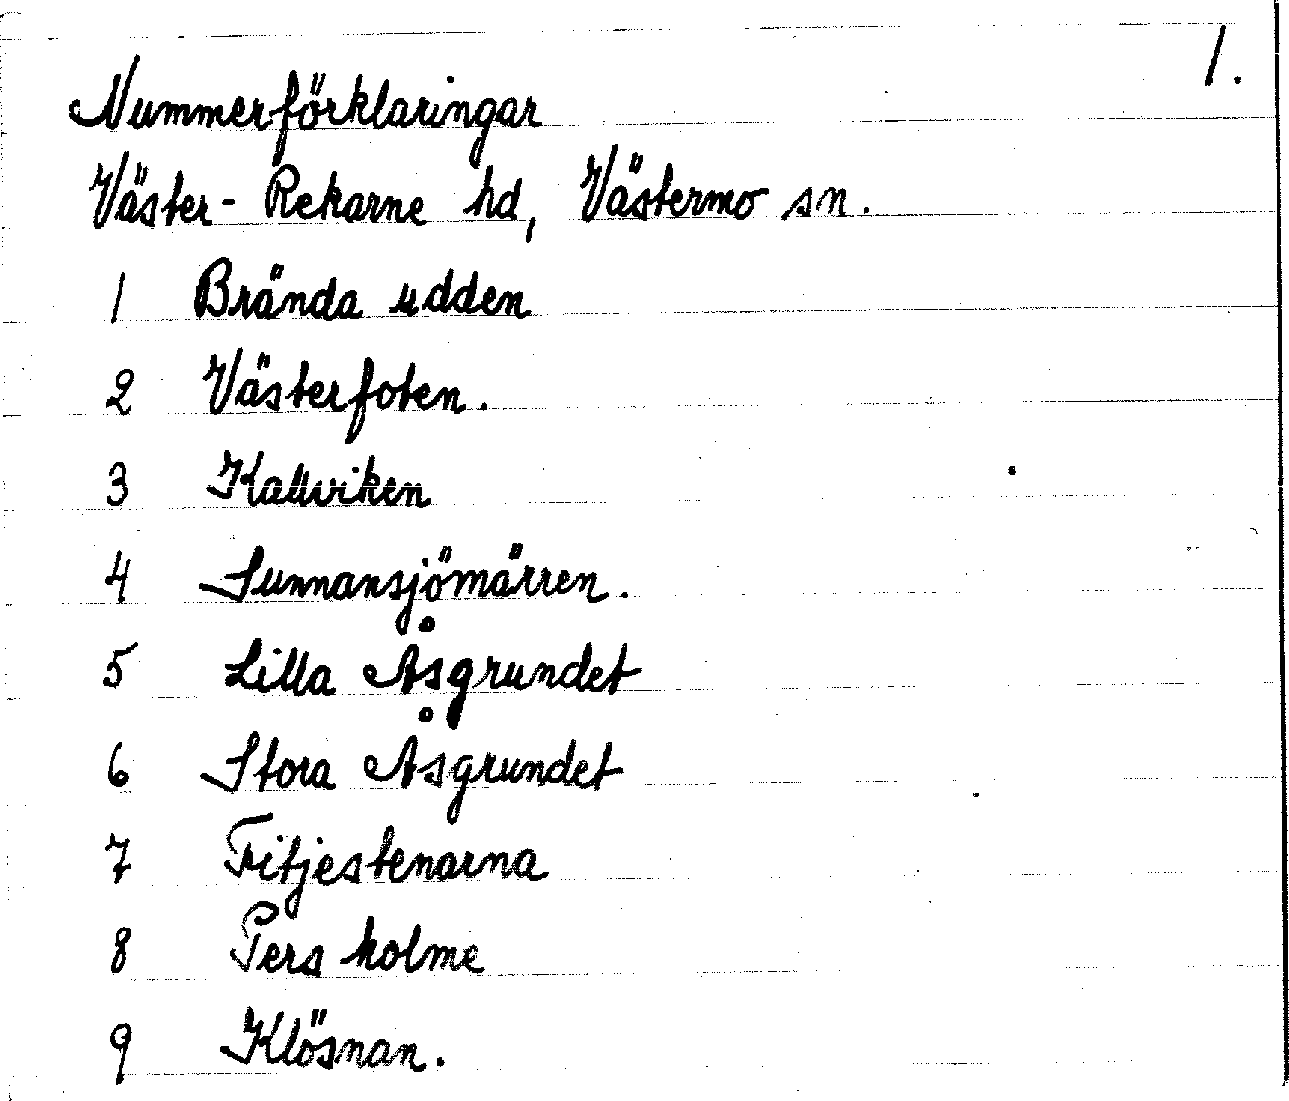 1.
Nummerförklaringar
Väster-Rekarne hd, Västermo sn.
1 Brända udden
2 Västerfoten.
3 Kallviken
4 Sunnansjömärren.
5 Lilla Åsgrundet
6 Stora Åsgrundet
7 Fitjestenarna
8 Pers holme
9 Klösnan.